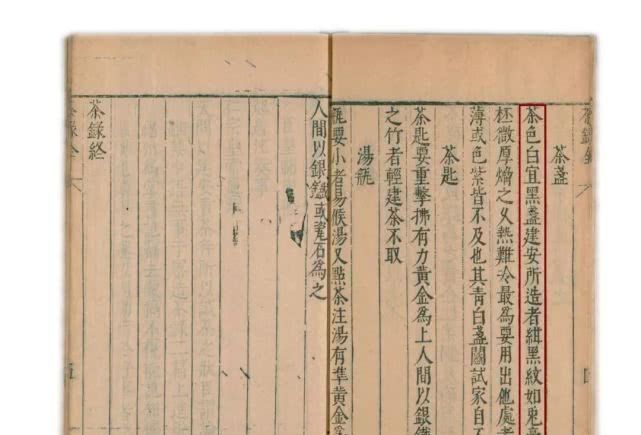 茶盞
茶色白宜黑盞建安所造者紺黑紋如兎
柸微厚熁之乆熱難冷最為要用出他處
薄或色紫皆不及也其青白盞鬭試家自
茶匙
茶匙要重擊拂有力黃金為上人間以銀鐵
之竹者輕建茶不取
湯瓶
瓶要小者易候湯又點茶注湯有準黃金
人間以銀鐵或瓷石為之
茶錄終